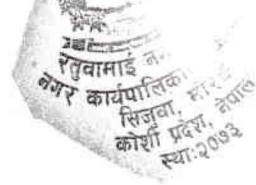 रतुवामाई न
नगर कार्यपालिका
सिजुवा, मोरङ
कोशी प्रदेश, नेपाल
स्था:२०७३